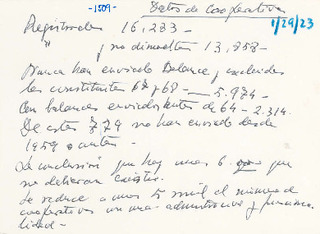 -1509-
Datos de cooperativas
1/29/23
Registradas 16,233 -
" y no disueltas 13,858 -
Nunca han enviado Balance, y excluidas
las constituidas 67 y 68 - 5.974 -
Con balances enviados antes de 64 - 2.314.
De estas 779 no han enviado desde
1959 o antes -
La conclusión que hay unas 6. que
no debieran existir.
Se reduce a unos 5 mil el número de
cooperativas en una administrativa y funciona
lidad -